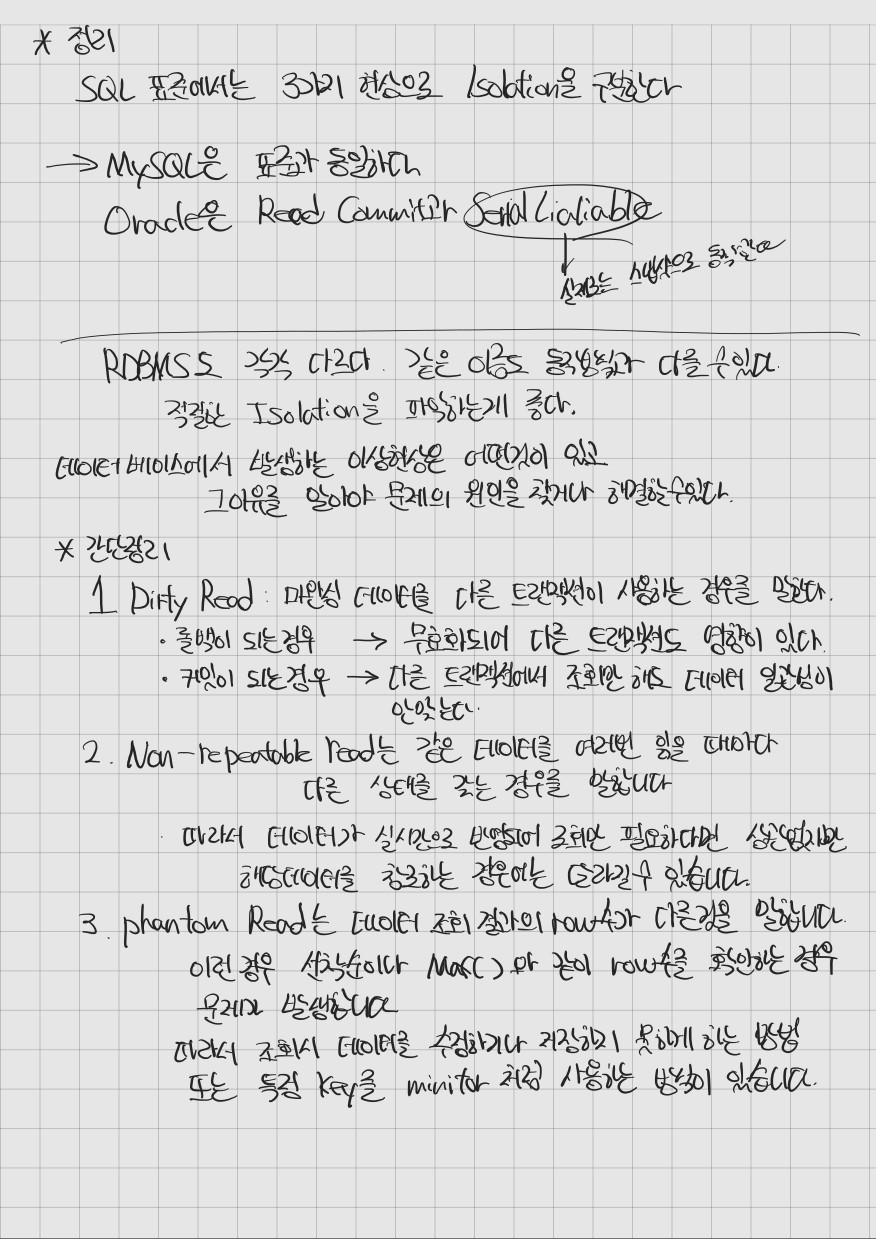 * 정리
SQL 표준에서는 3가지 현상으로 Isolation을 구분한다
→ MySQL은 표준과 동일하다
Oracle은 Read Commit과 Serial Lialiable
실제로는 스냅샷으로 동작한다
RDBMS도 각각 다르다. 같은 이름도 동작방식과 다를 수 있다.
적절한 Isolation을 파악하는게 좋다.
데이터 베이스에서 발생하는 이상현상은 어떤것이 있고
그이유를 알아야 문제의 원인을 찾거나 해결할수있다.
* 간단정리
1 Dirty Read : 미완성 데이터를 다른 트랜잭션이 사용하는 경우를 말한다.
· 롤백이 되는경우 → 무효화되어 다른 트랜잭션도 영향이 있다.
· 커밋이 되는경우 → 다른 트랜잭션에서 조회만 해도 데이터 일관성이
안맞는다.
2. Non-repeatable read는 같은 데이터를 여러번 읽을 때마다
다른 상태를 갖는 경우를 말합니다
· 따라서 데이터가 실시간으로 반영되어 조회만 필요하다면 상관없지만
해당데이터를 참고하는 경우에는 달라질수 있습니다.
3. phantom Read는 데이터 조회 결과의 row수가 다른것을 말합니다.
이런 경우 선착순이나 Max( ) 와 같이 row수를 확인하는 경우
문제가 발생합니다
따라서 조회시 데이터를 수정하거나 저장하지 못하게 하는 방법
또는 특정 key를 minitor 처럼 사용하는 방식이 있습니다.